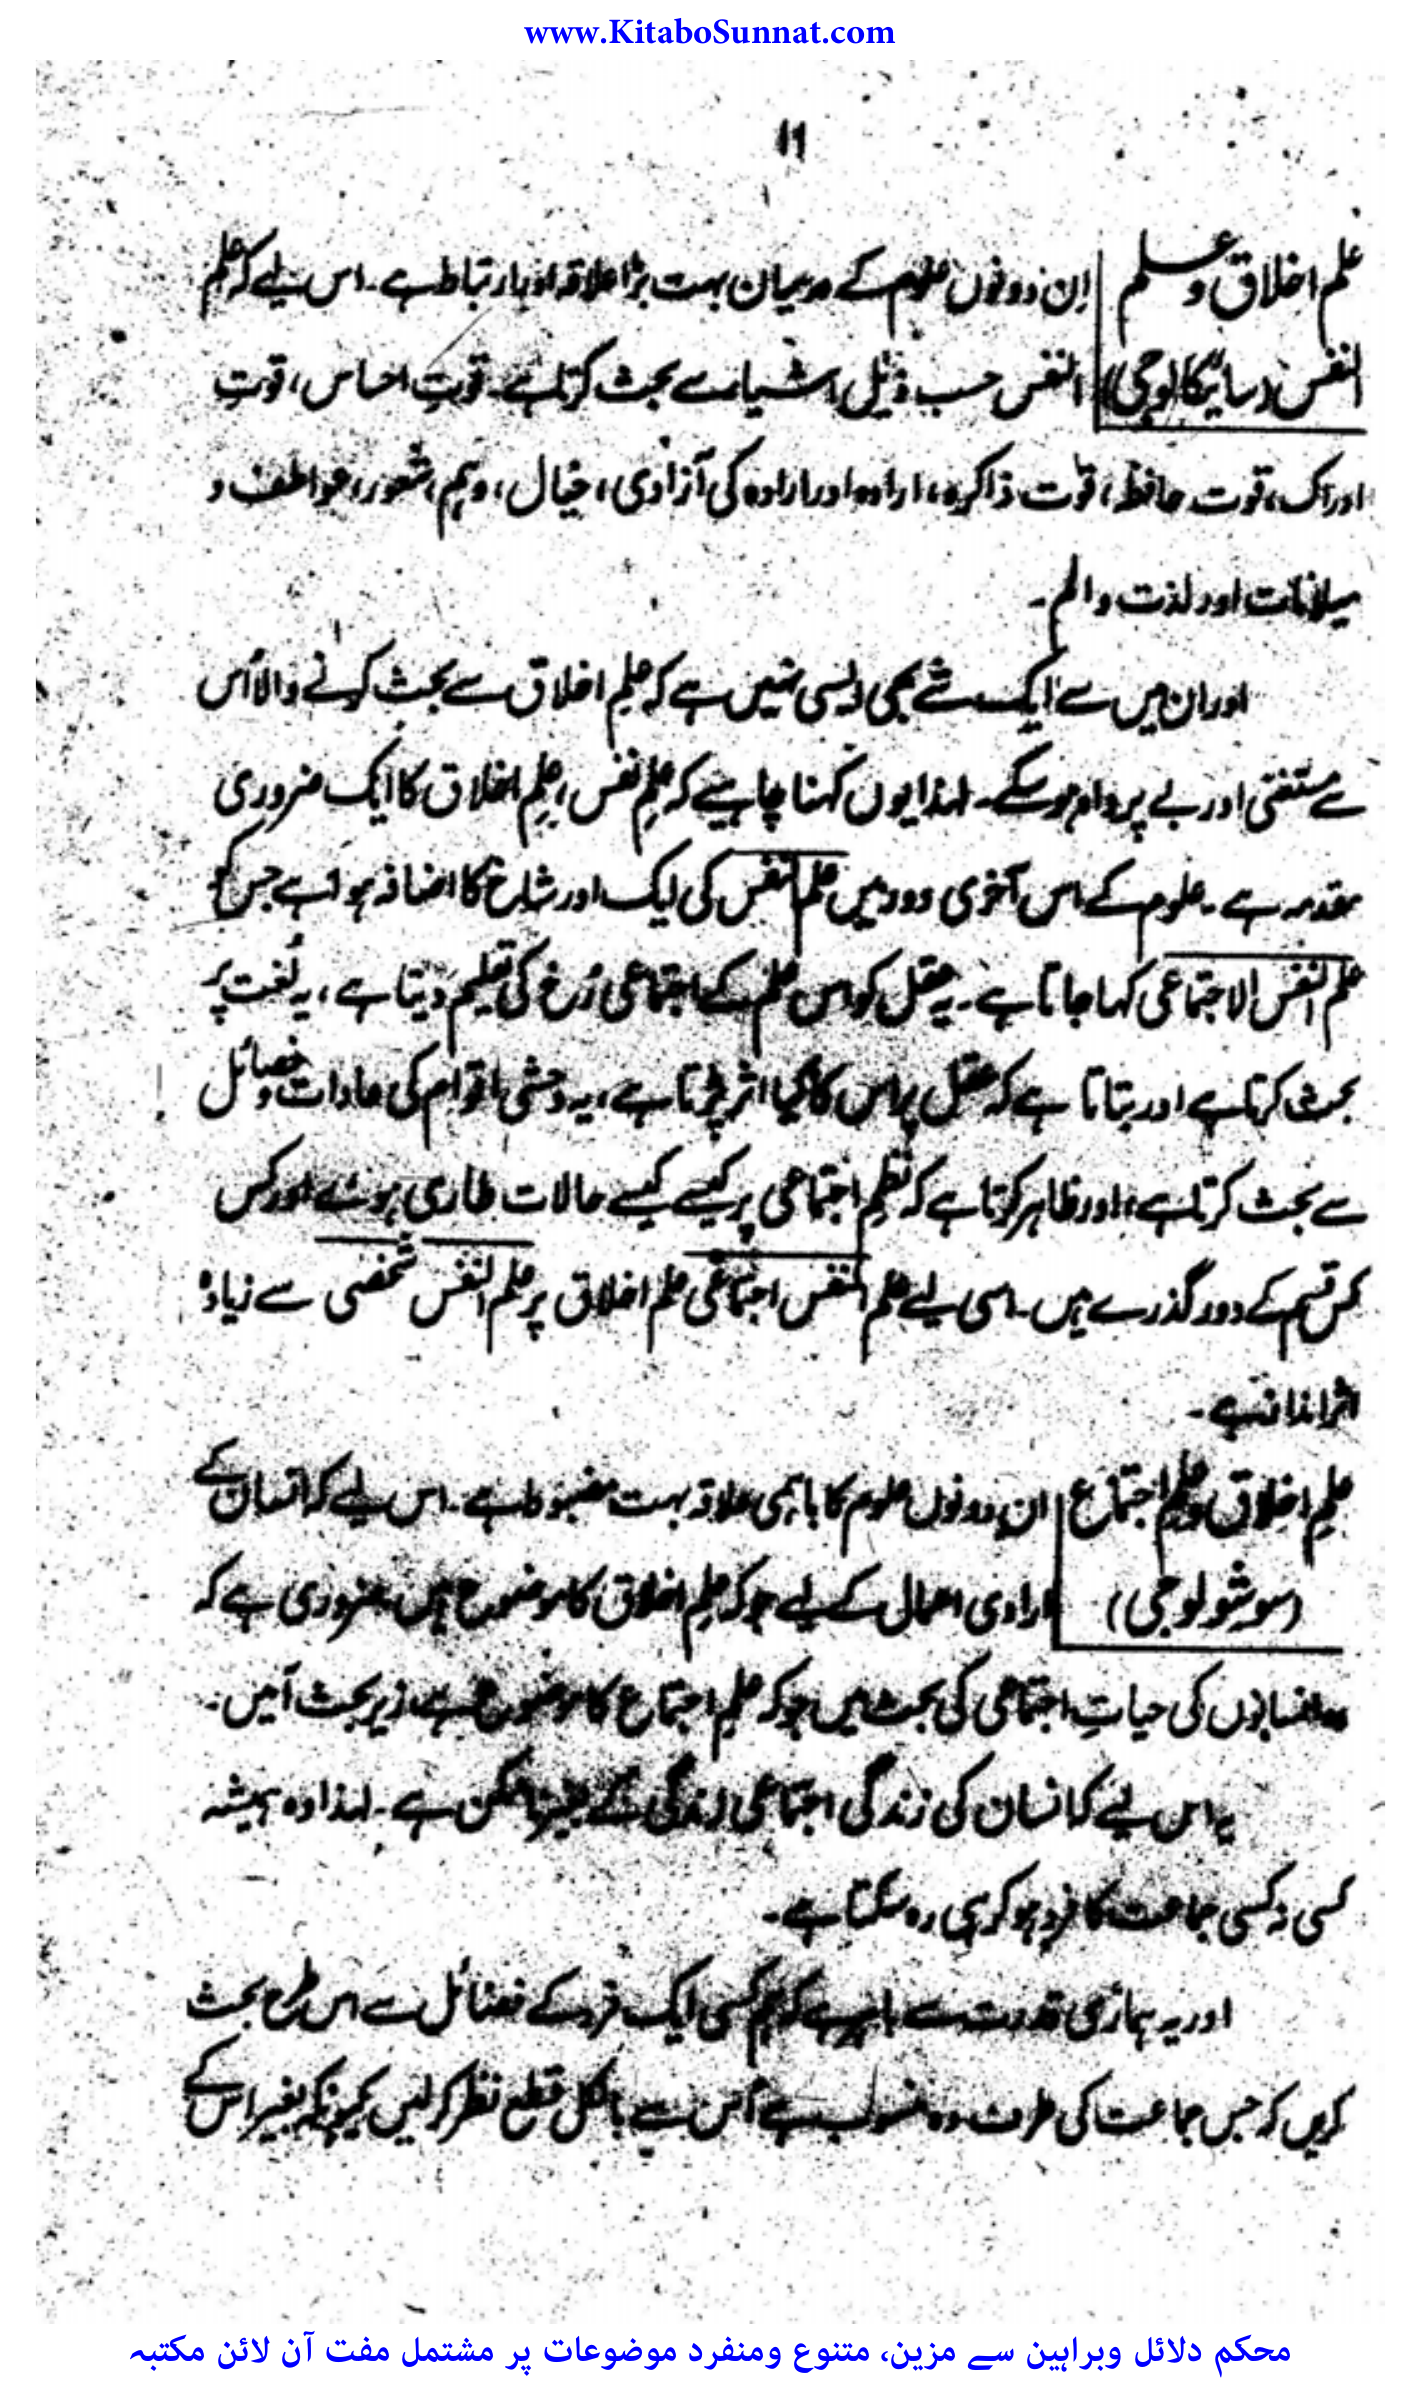 www.KitaboSunnat.com
۱۹
علم اخلاق و علم | اِن دونوں علوم کے درمیان بہت بڑا علاقہ اور ارتباط ہے۔ اس لیے کہ علم
النفس (سائیکالوجی) | النفس حسب ذیل اشیاء سے بحث کرتا ہے۔ قوتِ احساس، قوتِ
ادراک، قوت حافظہ، قوت ذاکرہ، ارادہ اور ارادہ کی آزادی، خیال، وہم، شعور، عواطف و
میلانات اور لذت و الم۔
اور ان میں سے ایک شے بھی ایسی نہیں ہے کہ علمِ اخلاق سے بحث کرنے والا اُس
سے مستغنی اور بے پرواہ ہو سکے۔ لہذا یوں کہنا چاہیے کہ علمِ نفس، علمِ اخلاق کا ایک ضروری
مقدمہ ہے۔ علوم کے اس آخری دور میں علم النفس کی ایک اور شاخ کا اضافہ ہوا ہے جس کو
علم النفس الاجتماعی کہا جاتا ہے۔ یہ عقل کو اس علم کے اجتماعی رُخ کی تعلیم دیتا ہے، یہ لُغت پر
بحث کرتا ہے اور بتاتا ہے کہ عقل پر اس کا کیا اثر پڑتا ہے، یہ وحشی اقوام کی عادات و خصائل
سے بحث کرتا ہے، اور ظاہر کرتا ہے کہ نظمِ اجتماعی پر کیسے کیسے حالات طاری ہوئے اور کس
کس قسم کے دور گذرے ہیں۔ اسی لیے علم النفس اجتماعی علم اخلاق پر علم النفس شخصی سے زیادہ
اثر انداز ہے۔
علمِ اخلاق و علمِ اجتماع | ان دونوں علوم کا باہمی علاقہ بہت مضبوط ہے۔ اس لیے کہ انسان کے
(سوشولوجی) | ارادی اعمال کے لیے جو کہ علمِ اخلاق کا موضوع ہیں، ضروری ہے کہ
وہ انسانوں کی حیاتِ اجتماعی کی بحث میں جو کہ علمِ اجتماع کا موضوع ہے، زیر بحث آئیں۔
یہ اس لیے کہ انسان کی زندگی اجتماعی زندگی کے بغیر ناممکن ہے۔ لہذا وہ ہمیشہ
کسی نہ کسی جماعت کا فرد ہو کر ہی رہ سکتا ہے۔
اور یہ ہماری قدرت سے باہر ہے کہ ہم کسی ایک فرد کے فضائل سے اس طرح بحث
کریں کہ جس جماعت کی طرف وہ منسوب ہے اُس سے بالکل قطع نظر کر لیں کیونکہ بغیر اس کے
محکم دلائل وبراہین سے مزین، متنوع ومنفرد موضوعات پر مشتمل مفت آن لائن مکتبہ